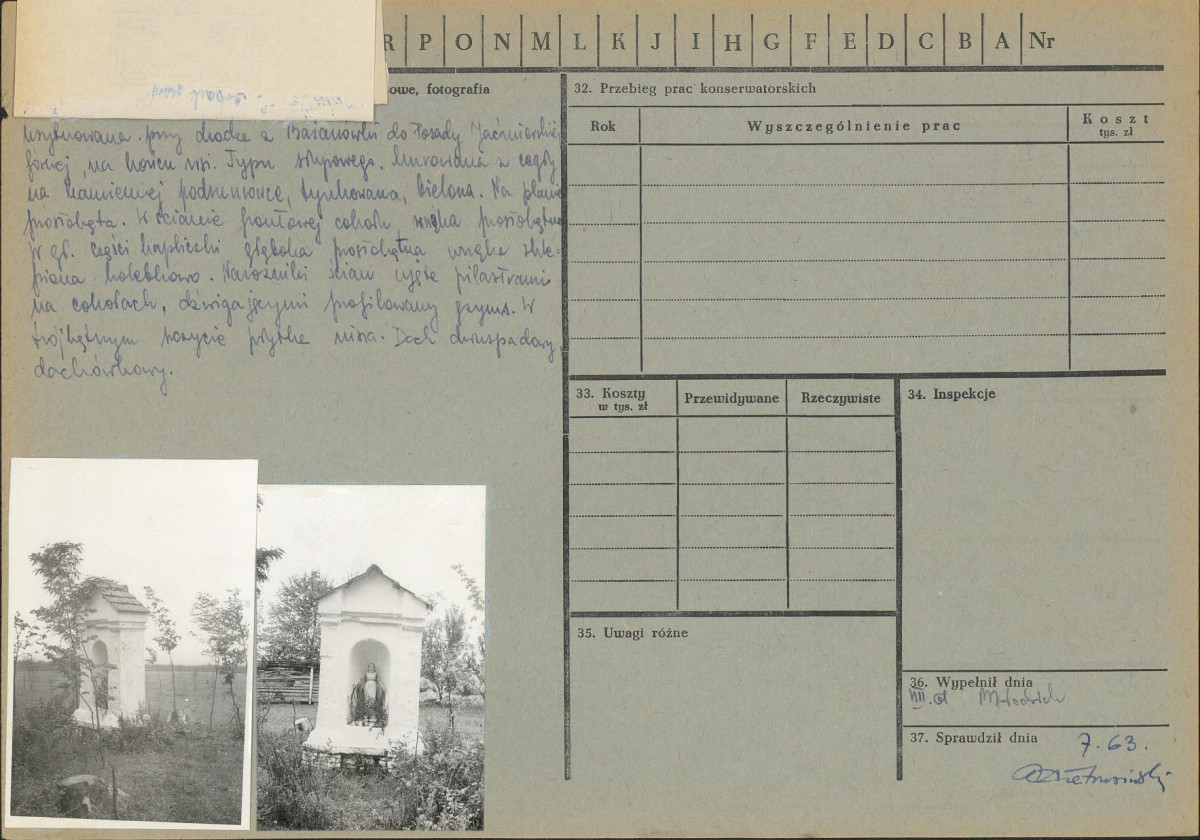 R P O N M L K J I H G F E D C B A Nr
owe, fotografia
usytuowana przy drodze z Bażanówki do Posady Jaćmierskiej
na końcu wsi. Typu słupowego. Murowana z cegły
na kamiennej podmurówce, tynkowana, bielona. Na planie
prostokąta. W ścianie frontowej cokołu, wnęka prostokątna
W gł. części kapliczki głęboka prostokątna wnęka skle-
piona kolebkowo. Narożniki ścian ujęte pilastrami
na cokołach, dźwigającymi profilowany gzyms. W
trójkątnym szczycie płytka nisza. Dach dwuspadowy
dachówkowy.
32. Przebieg prac konserwatorskich
Rok
Wyszczególnienie prac
Koszt
tys. zł
33. Koszty
w tys. zł
Przewidywane
Rzeczywiste
34. Inspekcje
35. Uwagi różne
36. Wypełnił dnia
VIII.
37. Sprawdził dnia
7.63.